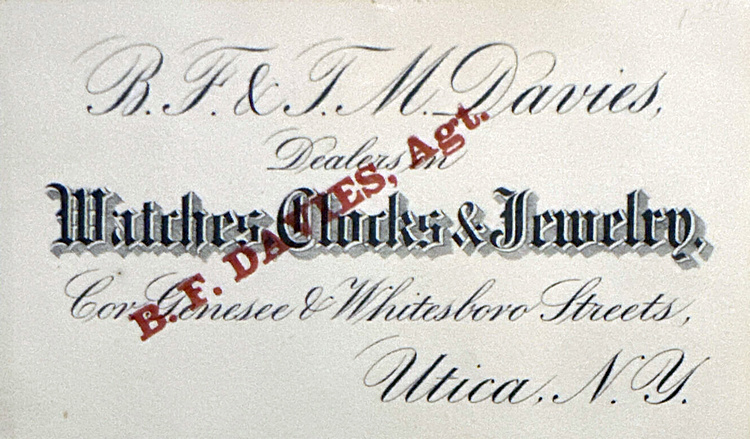 B. F. & T. M. Davies,
Dealers in
Watches Clocks & Jewelry.
Cor. Genesee & Whitesboro Streets,
Utica, N. Y.
B. F. DAVIES, Agt.